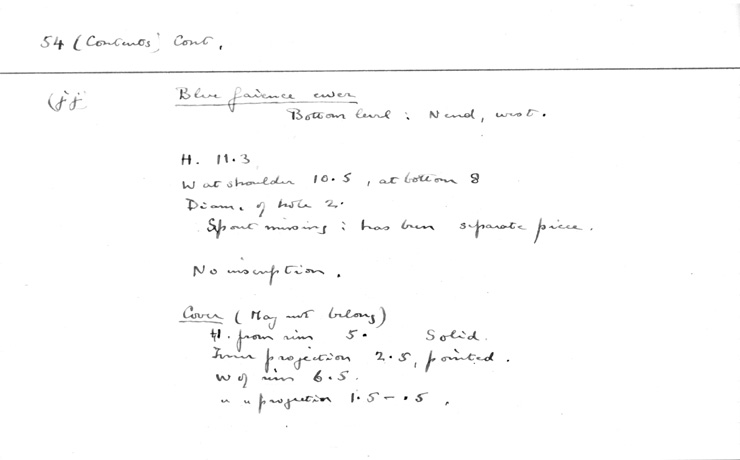 54 (Contents) Cont.
(jj)
Blue faience ewer
Bottom level : N end, west.
H. 11.3
W at shoulder 10.5, at bottom 8
Diam. of hole 2.
Spout missing : has been separate piece.
No inscription.
Cover (May not belong)
H. from rim 5. Solid.
Inner projection 2.5, pointed.
W of rim 6.5.
" " projection 1.5 - .5.